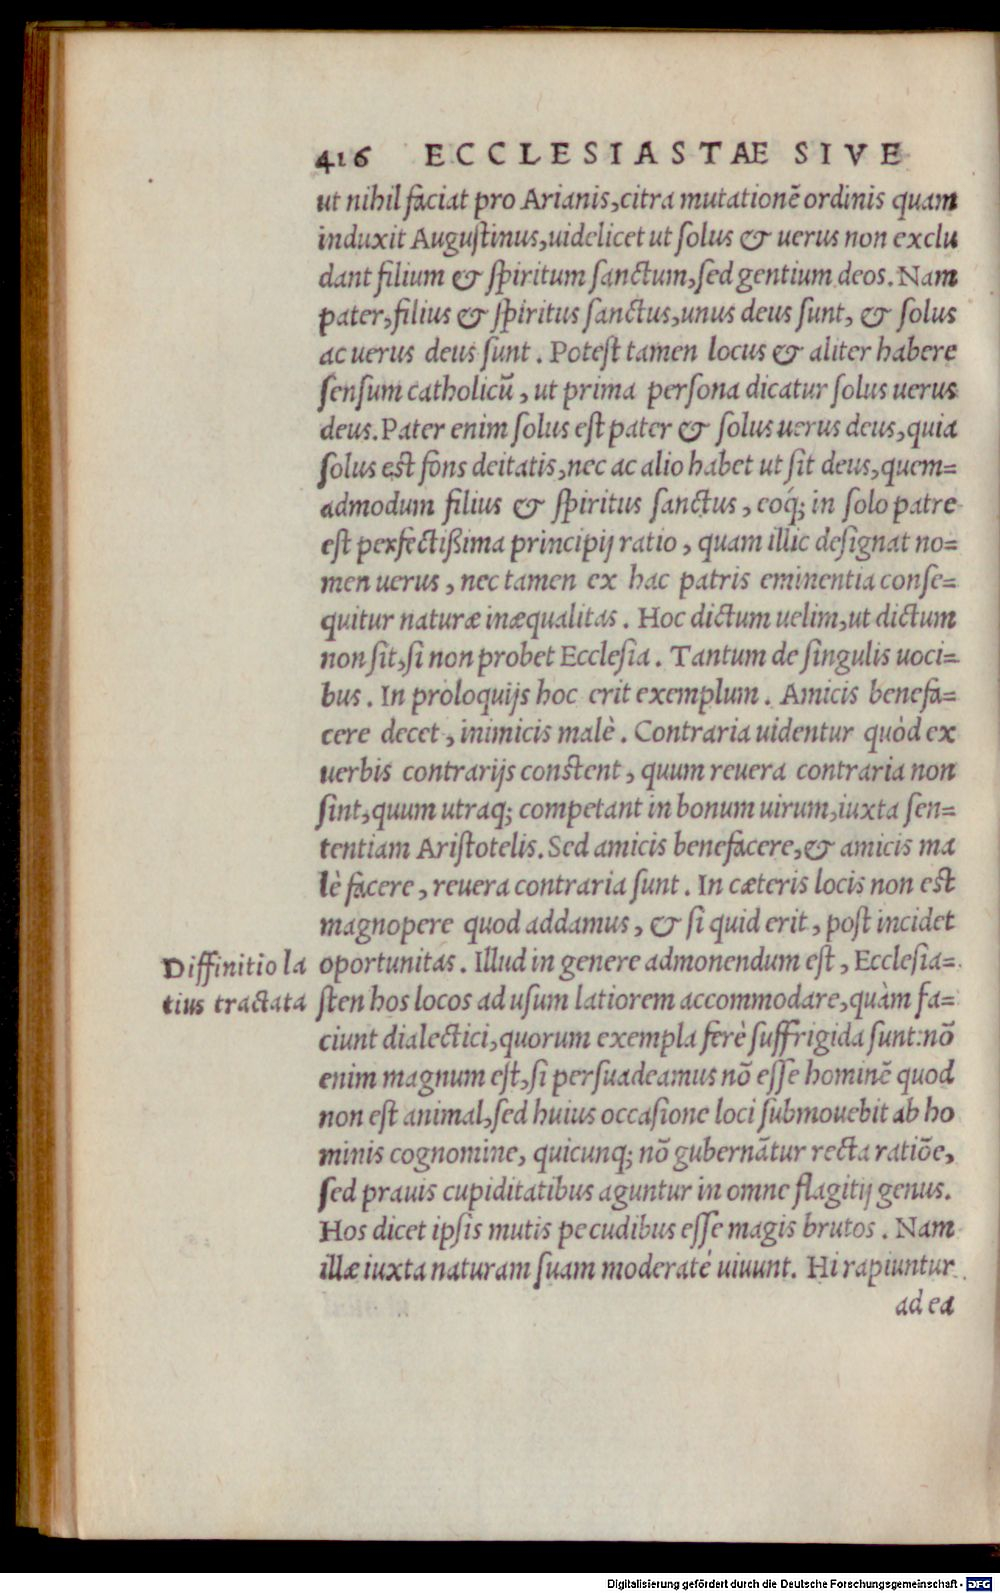 416 ECCLESIASTAE SIVE
ut nihil faciat pro Arianis, citra mutationẽ ordinis quam
induxit Augustinus, uidelicet ut solus & uerus non exclu
dant filium & spiritum sanctum, sed gentium deos. Nam
pater, filius & spiritus sanctus, unus deus sunt, & solus
ac uerus deus sunt. Potest tamen locus & aliter habere
sensum catholicũ, ut prima persona dicatur solus uerus
deus. Pater enim solus est pater & solus uerus deus, quia
solus est fons deitatis, nec ac alio habet ut sit deus, quem=
admodum filius & spiritus sanctus, eoq́; in solo patre
est perfectißima principij ratio, quam illic designat no=
men uerus, nec tamen ex hac patris eminentia conse=
quitur naturæ inæqualitas. Hoc dictum uelim, ut dictum
non sit, si non probet Ecclesia. Tantum de singulis uoci=
bus. In proloquijs hoc erit exemplum. Amicis benefa=
cere decet, inimicis malè. Contraria uidentur quòd ex
uerbis contrarijs constent, quum reuera contraria non
sint, quum utraq; competant in bonum uirum, iuxta sen=
tentiam Aristotelis. Sed amicis benefacere, & amicis ma
lè facere, reuera contraria sunt. In cæteris locis non est
magnopere quod addamus, & si quid erit, post incidet
oportunitas. Illud in genere admonendum est, Ecclesia=
sten hos locos ad usum latiorem accommodare, quàm fa=
ciunt dialectici, quorum exempla ferè suffrigida sunt: nõ
enim magnum est, si persuadeamus nõ esse hominẽ quod
non est animal, sed huius occasione loci submouebit ab ho
minis cognomine, quicunq; nõ gubernãtur recta ratiõe,
sed prauis cupiditatibus aguntur in omne flagitij genus.
Hos dicet ipsis mutis pecudibus esse magis brutos. Nam
illæ iuxta naturam suam moderatè uiuunt. Hi rapiuntur
ad ea
Diffinitio la
tius tractata
Digitalisierung gefördert durch die Deutsche Forschungsgemeinschaft - DFG